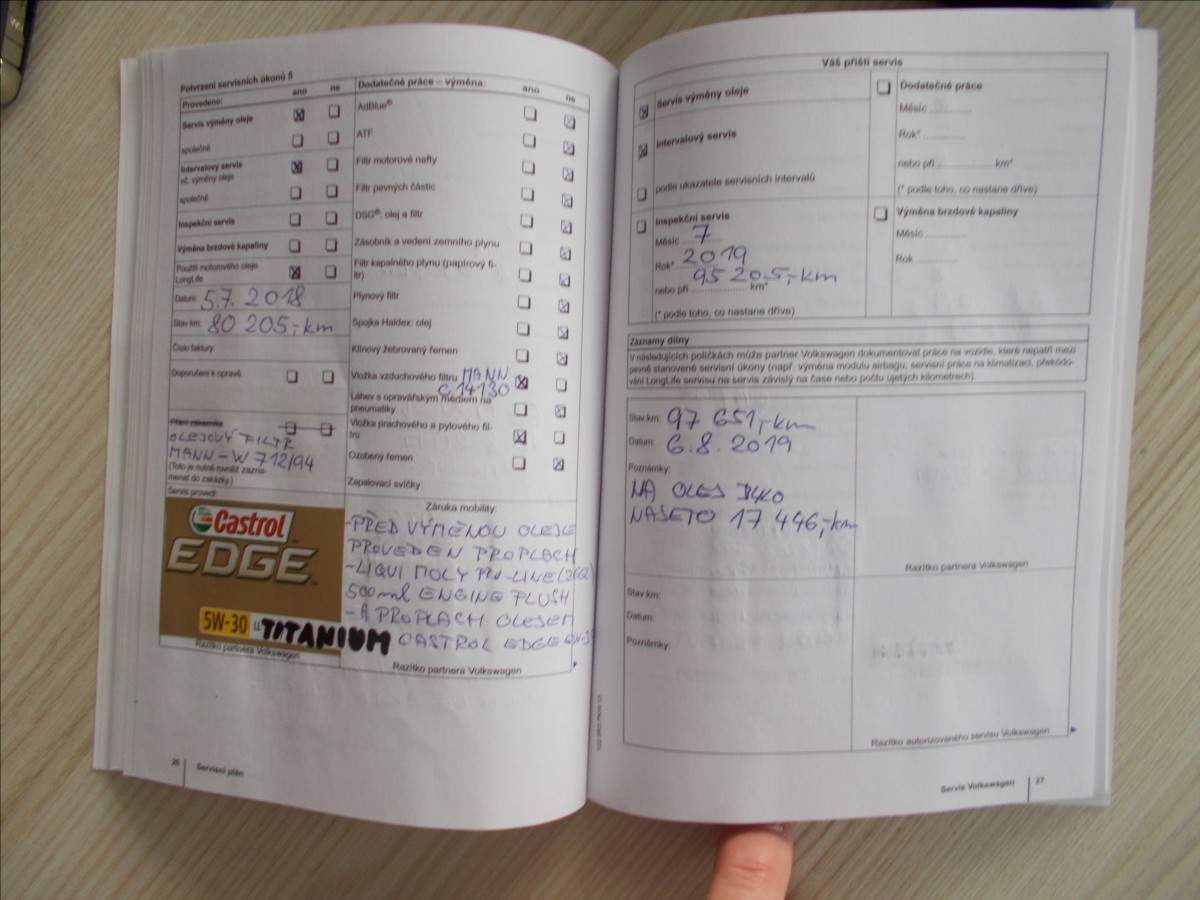 Potvrzení servisních úkonů 5
Provedeno: ano ne
Servis výměny oleje
společně
Intervalový servis
vč. výměny oleje
společně
Inspekční servis
Výměna brzdové kapaliny
Použití motorového oleje
LongLife
Datum: 5.7. 2018
Stav km: 80 205,- km
Číslo faktury:
Doporučení k opravě
Přání zákazníka
OLEJOVÝ FILTR
MANN - W 712/94
(Toto je nutné rovněž zazna-
menat do zakázky.)
Servis provedl:
Castrol
EDGE
5W-30 TITANIUM
Razítko partnera Volkswagen
Dodatečné práce – výměna: ano ne
AdBlue®
ATF
Filtr motorové nafty
Filtr pevných částic
DSG®: olej a filtr
Zásobník a vedení zemního plynu
Filtr kapalného plynu (papírový fi-
ltr)
Plynový filtr
Spojka Haldex: olej
Klínový žebrovaný řemen
Vložka vzduchového filtru MANN
C 14130
Láhev s opravářským médiem na
pneumatiky
Vložka prachového a pylového fil-
tru
Ozubený řemen
Zapalovací svíčky
Záruka mobility:
-PŘED VÝMĚNOU OLEJE
PROVEDEN PROPLACH
-LIQUI MOLY PRO-LINE
500 ml ENGINE FLUSH
-A PROPLACH OLEJEM
CASTROL EDGE
Razítko partnera Volkswagen
26 Servisní plán
Váš příští servis
Servis výměny oleje
Intervalový servis
podle ukazatele servisních intervalů
Inspekční servis
Měsíc 7
Rok* 2019
95 205,- km
nebo při km*
(* podle toho, co nastane dříve)
Dodatečné práce
Měsíc
Rok*
nebo při km*
(* podle toho, co nastane dříve)
Výměna brzdové kapaliny
Měsíc
Rok
Záznamy dílny
V následujících políčkách může partner Volkswagen dokumentovat práce na vozidle, které nepatří mezi
pevně stanovené servisní úkony (např. výměna modulu airbagu, servisní práce na klimatizaci, překódo-
vání LongLife servisu na servis závislý na čase nebo počtu ujetých kilometrech).
Stav km: 97 651,- km
Datum: 6.8. 2019
Poznámky:
NA OLEJ
NAJETO 17 446,- km
Razítko partnera Volkswagen
Stav km:
Datum:
Poznámky:
Razítko autorizovaného servisu Volkswagen
Servis Volkswagen 27